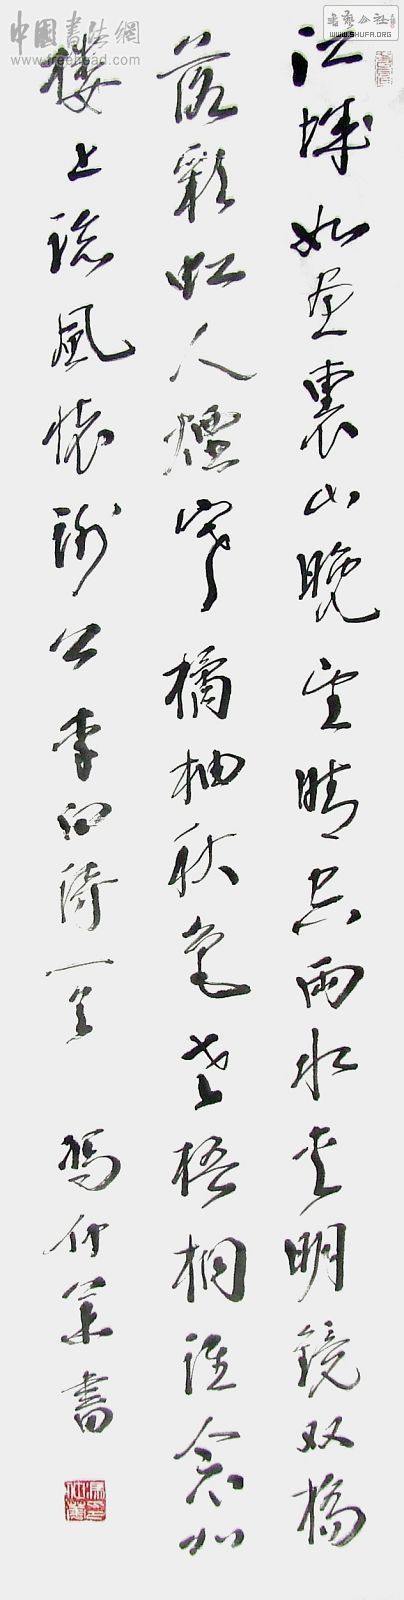 中國書法網
www.freehead.com
書藝公社
WWW.SHUFA.ORG
江城如畫裏山晚望晴空兩水夾明鏡双橋
落彩虹人煙寒橘柚秋色老梧桐誰念北
樓上臨風懷謝公李白詩一首 馮仲書